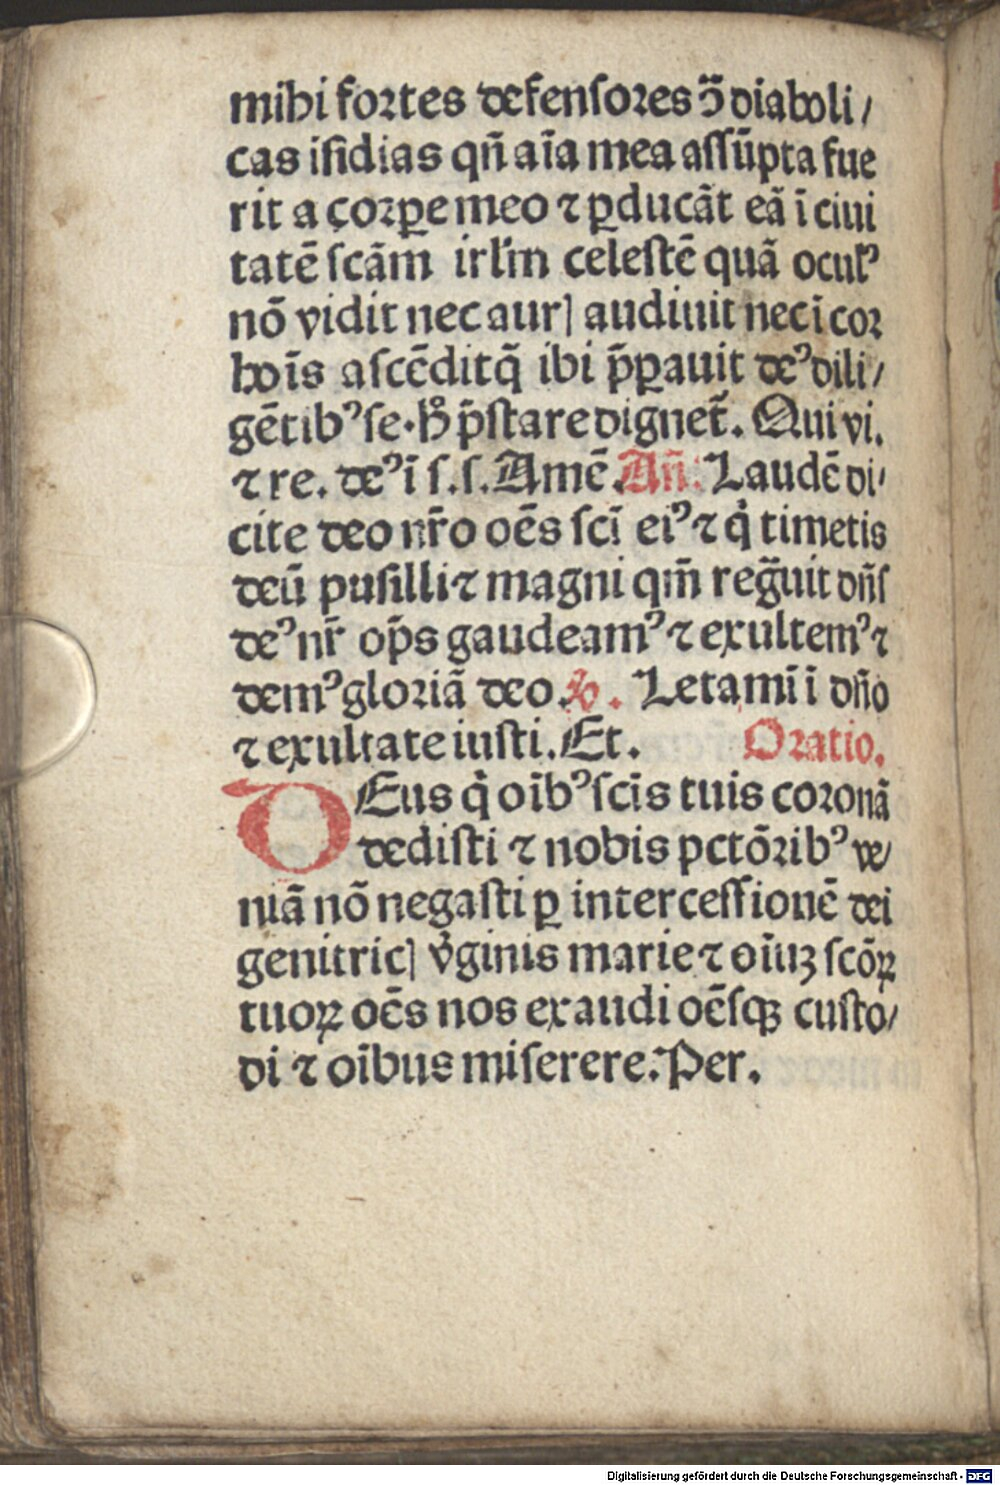 mihi fortes defenſores ꝯ̃ diaboli/
cas iſidias qñ aĩa mea aſſũpta fue
rit a corꝑe meo ⁊ ꝑducãt eã ĩ ciui
tatẽ ſcãm irl̃m celeſtẽ quã oculꝰ
nõ vidit nec aurꝭ audiuit nec ĩ cor
hoĩs aſcẽdit q̃ ibi p̃ꝑauit deꝰ dili/
gẽtibꝰ ſe. hͦ p̃ſtare dignet᷑. Qui vi.
⁊ re. deꝰ ĩ ſ. ſ. Amẽ. Añ. Laudẽ di/
cite deo nr̃o oẽs ſcĩ eiꝰ ⁊ qͥ timetis
deũ puſilli ⁊ magni qm̃ regᷓuit dñſ
deꝰ nr̃ op̃s gaudeamꝰ ⁊ exultemꝰ ⁊
demꝰ gloriã deo. ℣. Letamĩ ĩ dño
⁊ exultate iuſti. Et. Oratio.
DEus qͥ oĩbꝰ ſcĩs tuis coronã
dediſti ⁊ nobis pctõribꝰ ve/
niã nõ negaſti ꝑ interceſſionẽ dei
genitricꝭ vͥginis marie ⁊ oĩuꝫ ſcõꝝ
tuoꝝ oẽs nos exaudi oẽſqꝫ cuſto/
di ⁊ oĩbus miſerere. Per.
Digitalisierung gefördert durch die Deutsche Forschungsgemeinschaft - DFG